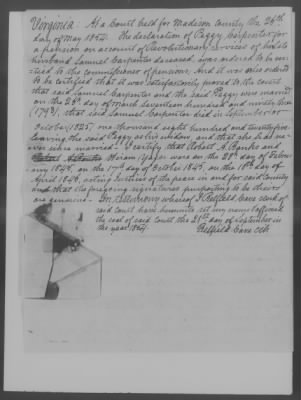 Virginia. At a Court held for Madison County the 26th
day of May 1842. The declaration of Peggy Carpenter for
a pension on account of Revolutionary services of her late
husband Samuel Carpenter deceased, was ordered to be cer-
tified to the commissioner of pensions. And it was also ordered
to be certified that it was satisfactorily proved to the court
that said Samuel Carpenter and the said Peggy were married
on the 26th day of March seventeen hundred and ninety three
(1793), that said Samuel Carpenter died in September or
October (1825) one thousand eight hundred and twenty five
leaving the said Peggy as his widow, and that she had ne-
ver since married. I certify that Robert A. Banks and
Hiram Yager was on the 28th day of Febru-
ary 1844, on the 17th day of October 1843, on the 18th day of
April 1846, acting Justices of the peace in and for said County
and that the foregoing signatures purporting to be theirs
are genuine. In testimony whereof I Belfield Cave clerk of
said court have hereunto set my name & affixed
the seal of said court the 21st day of September in
the year 1844
Belfield Cave Clk